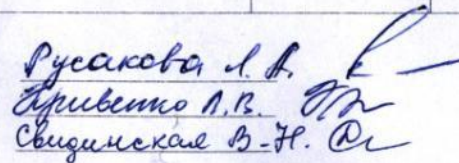 Русакова Л. А.
Кривенко Л. В.
Свидинская В-Н.